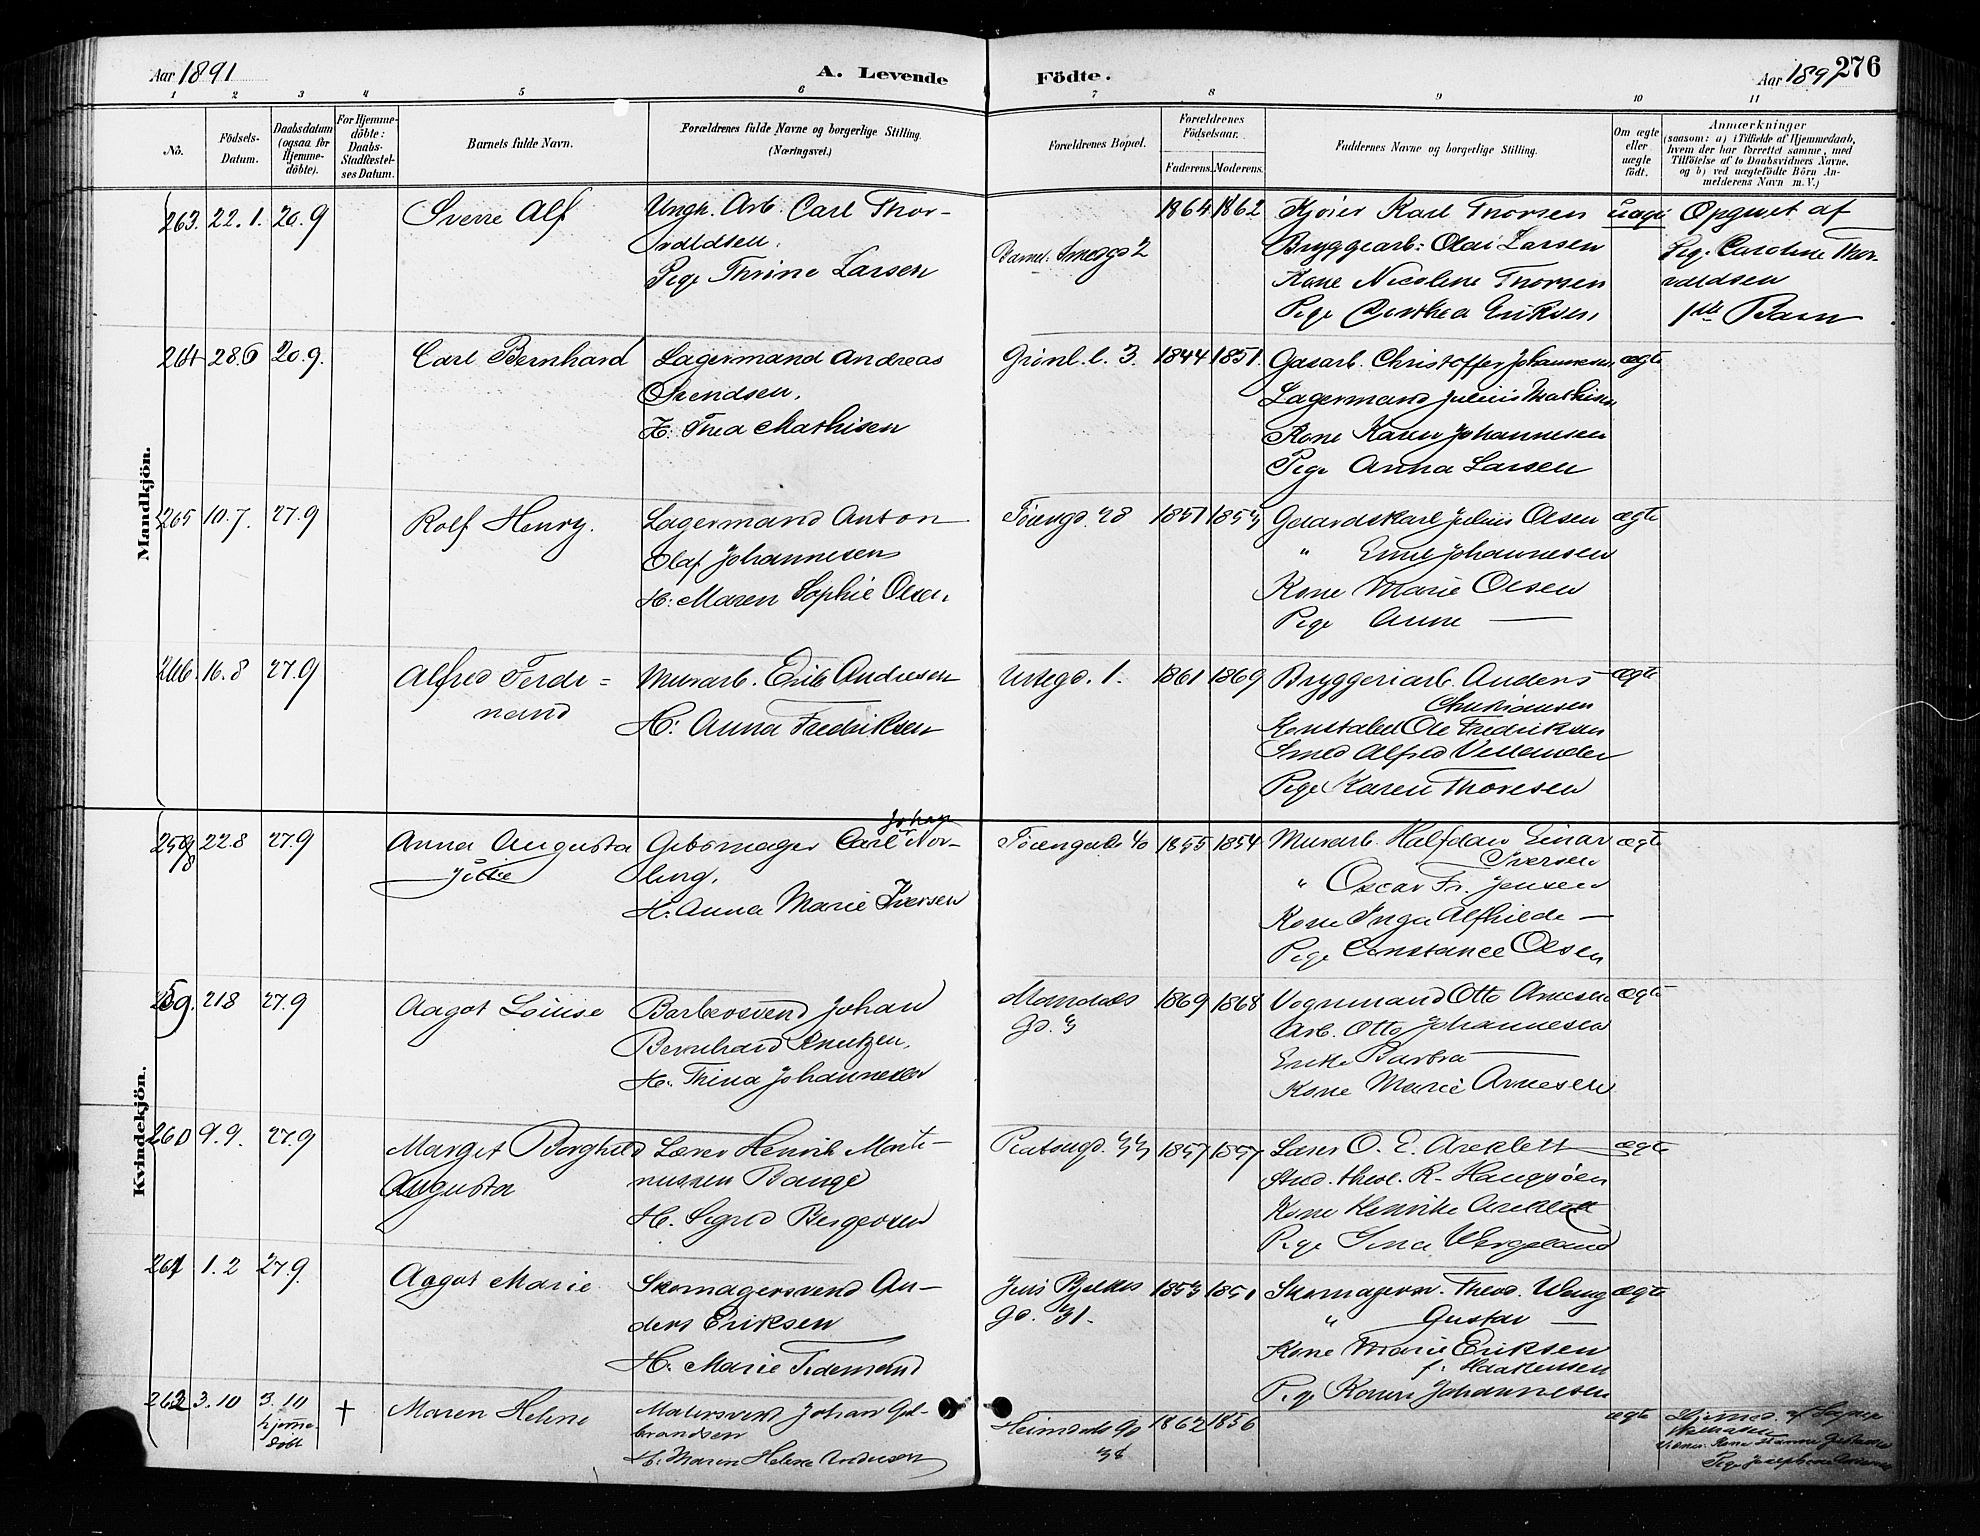 Aar 1891
A. Levende
Födte.
Aar 1891 276
1 2 3 4 5 6 7 8 9 10 11
No.
Födsels-
Datum.
Daabsdatum
(ogsaa for
Hjemme-
döbte).
For Hjemme-
döbte:
Daabs-
Stadfæstel-
ses Datum.
Barnets fulde Navn.
Forældrenes fulde Navne og borgerlige Stilling.
(Næringsvei.)
Forældrenes Bopæl.
Forældrenes
Födselsaar.
Faderens. Moderens.
Faddernes Navne og borgerlige Stilling.
Om ægte
eller
uægte
födt.
Anmærkninger
(saasom: a) i Tilfælde af Hjemmedaab,
hvem der har forrettet samme, med
Tilföielse af to Daabsvidners Navne,
og b) ved uægtefödte Börn An-
melderens Navn m. V.)
Mandkjön.
263. 22.1. 20.9 Sverre Alf
Ungk. Arb. Carl Thor-
valdsen.
Pige Thrine Larsen
Smedgd 2
1864 1862
Kjører Karl Thorsen
Bryggearb: Olai Larsen
Kone Nicoline Thorsen
Pige Dorthea Eriksen
uægte
Opgivet af
Pige Caroline Thor-
valdsen
1ste Barn
264 28.6 20.9. Carl Bernhard
Lagermand Andreas
Svendsen.
H: Thea Mathisen
Grønl. l. 3. 1844 1851.
Gasarb. Christoffer Johannesen
Lagermand Julius Mathisen
Kone Karen Johannesen
Pige Anna Larsen
ægte
265 10.7. 27.9 Rolf Henry.
Lagermand Anton
Olaf Johannesen
H: Maren Sophie Olsen
Töiengd. 28 1851 1853
Gaardskarl Julius Olsen
" Emil Johannesen
Kone Marie Olsen
Pige Anne —
ægte
266. 16.8 27.9 Alfred Ferdi=
nand
Murarb. Erik Andresen
H: Anna Fredriksen
Urtegd. 1. 1861 1869
Bryggeriarb. Anders
Christiansen
Konstabel Ole Fredriksen
Smed Alfred
Pige Karen Thoresen
ægte
Kvindekjön.
258 22.8 27.9 Anna Augusta
Gibsmager Carl Johan Nor-
ling.
H. Anna Marie Iversen
1855 1854
Murarb. Halfdan Einar
Iversen
" Oscar Fr. Jensen
Kone Inga Alfhilde —
Pige Constance Olsen
ægte
259. 21.8 27.9 Aagot Louise
Barbersvend Johan
Bernhard Knutzen.
H. Trina Johannesen
Mandals
Gd. 3
1869 1868
Vognmand Otto Arnesen
Arb. Otto Johannesen
Enke Barbra —
Kone Marie Arnesen
ægte
260 9.9. 27.9 Margit Borghild
Augusta
Lærer Henrik Marti-
nussen Bange
H. Sigrid Bergersen
Platougd. 33 1857 1857
Lærer O. E. Areklett
Stud. theol. R. Haugsöen
Kone Henrike Areklett
Pige Sina Wergeland
ægte
261 1.2 27.9. Aagot Marie
Skomagersvend An-
ders Eriksen
H. Marie Tidemand
Jens Bjelkes
Gd. 31.
1853 1851
Skomagersv. Theod. Wang
" Gustav —
Kone Marie Eriksen
f. Haakensen
Pige Karen Johannesen
ægte
262 3.10 3.10
hjemme-
döbt
† Maren Helene
Malersvend Johan Gul-
brandsen
H. Maren Helene Andersen
Heimdals Gd
1862 1856
ægte
Hjemmed. af